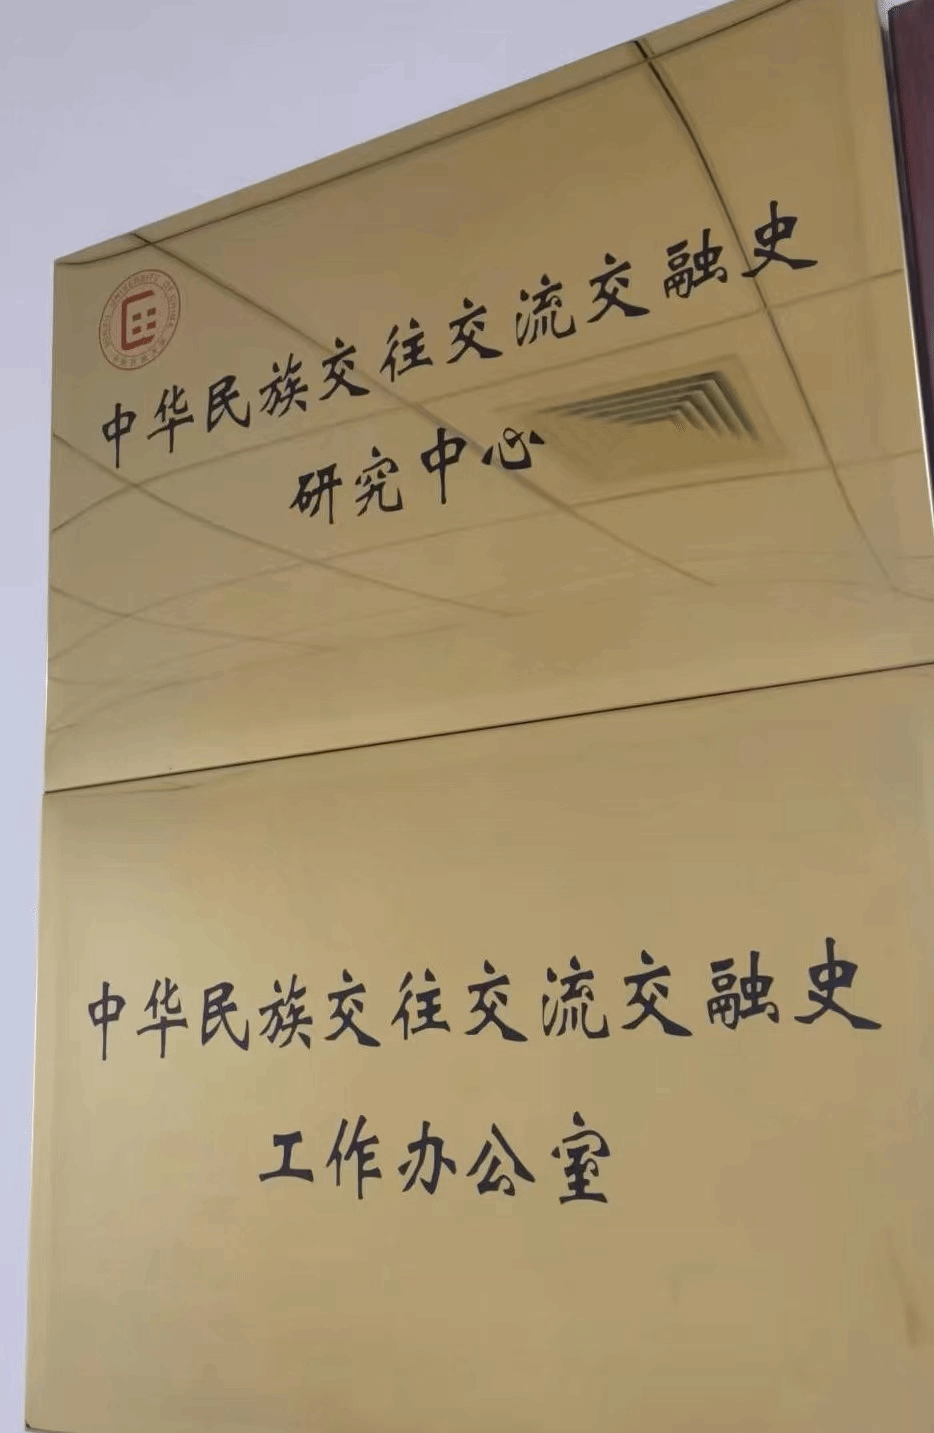 MINZU UNIVERSITY OF CHINA
中华民族交往交流交融史
研究中心
中华民族交往交流交融史
工作办公室